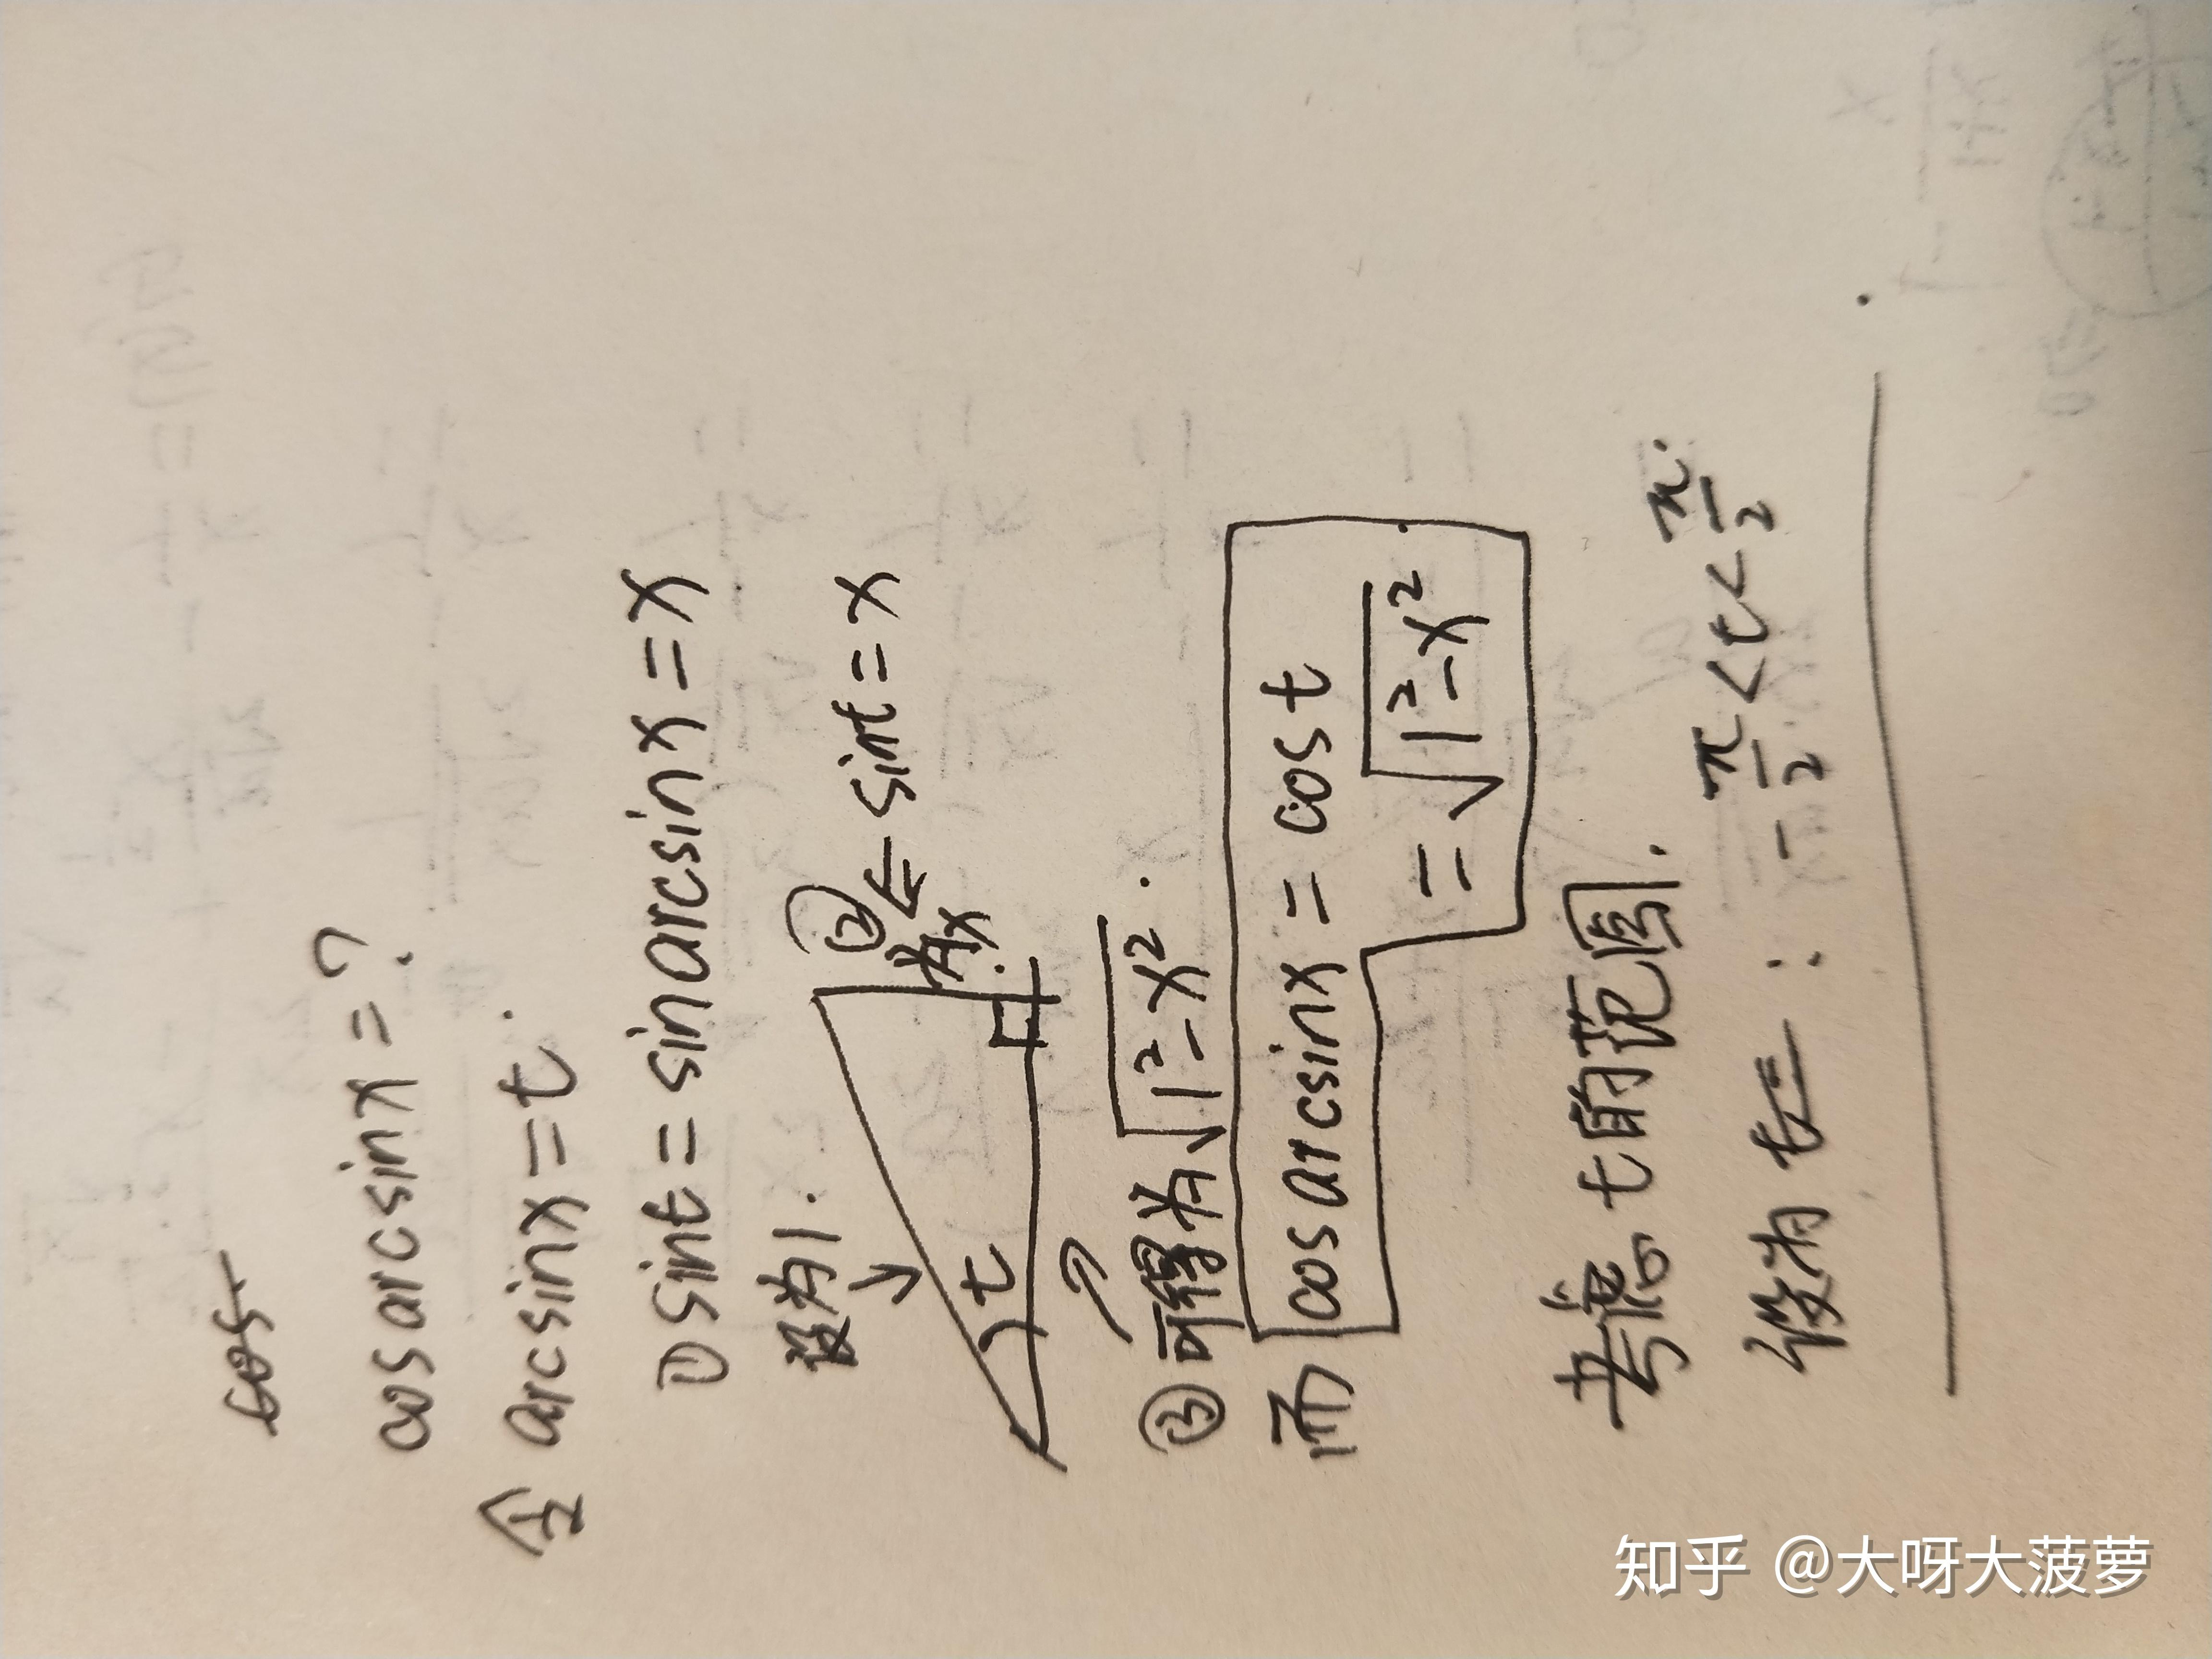 cos
cosarcsinx=?
令 arcsinx=t.
① sint=sinarcsinx=x
设为1.
② ← sint=x
为x
t
③ 可得为√1²-x².
而 cosarcsinx=cost
=√1²-x².
考虑t的范围.
设为 t= : -π/2<t<π/2.
知乎 @大呀大菠萝